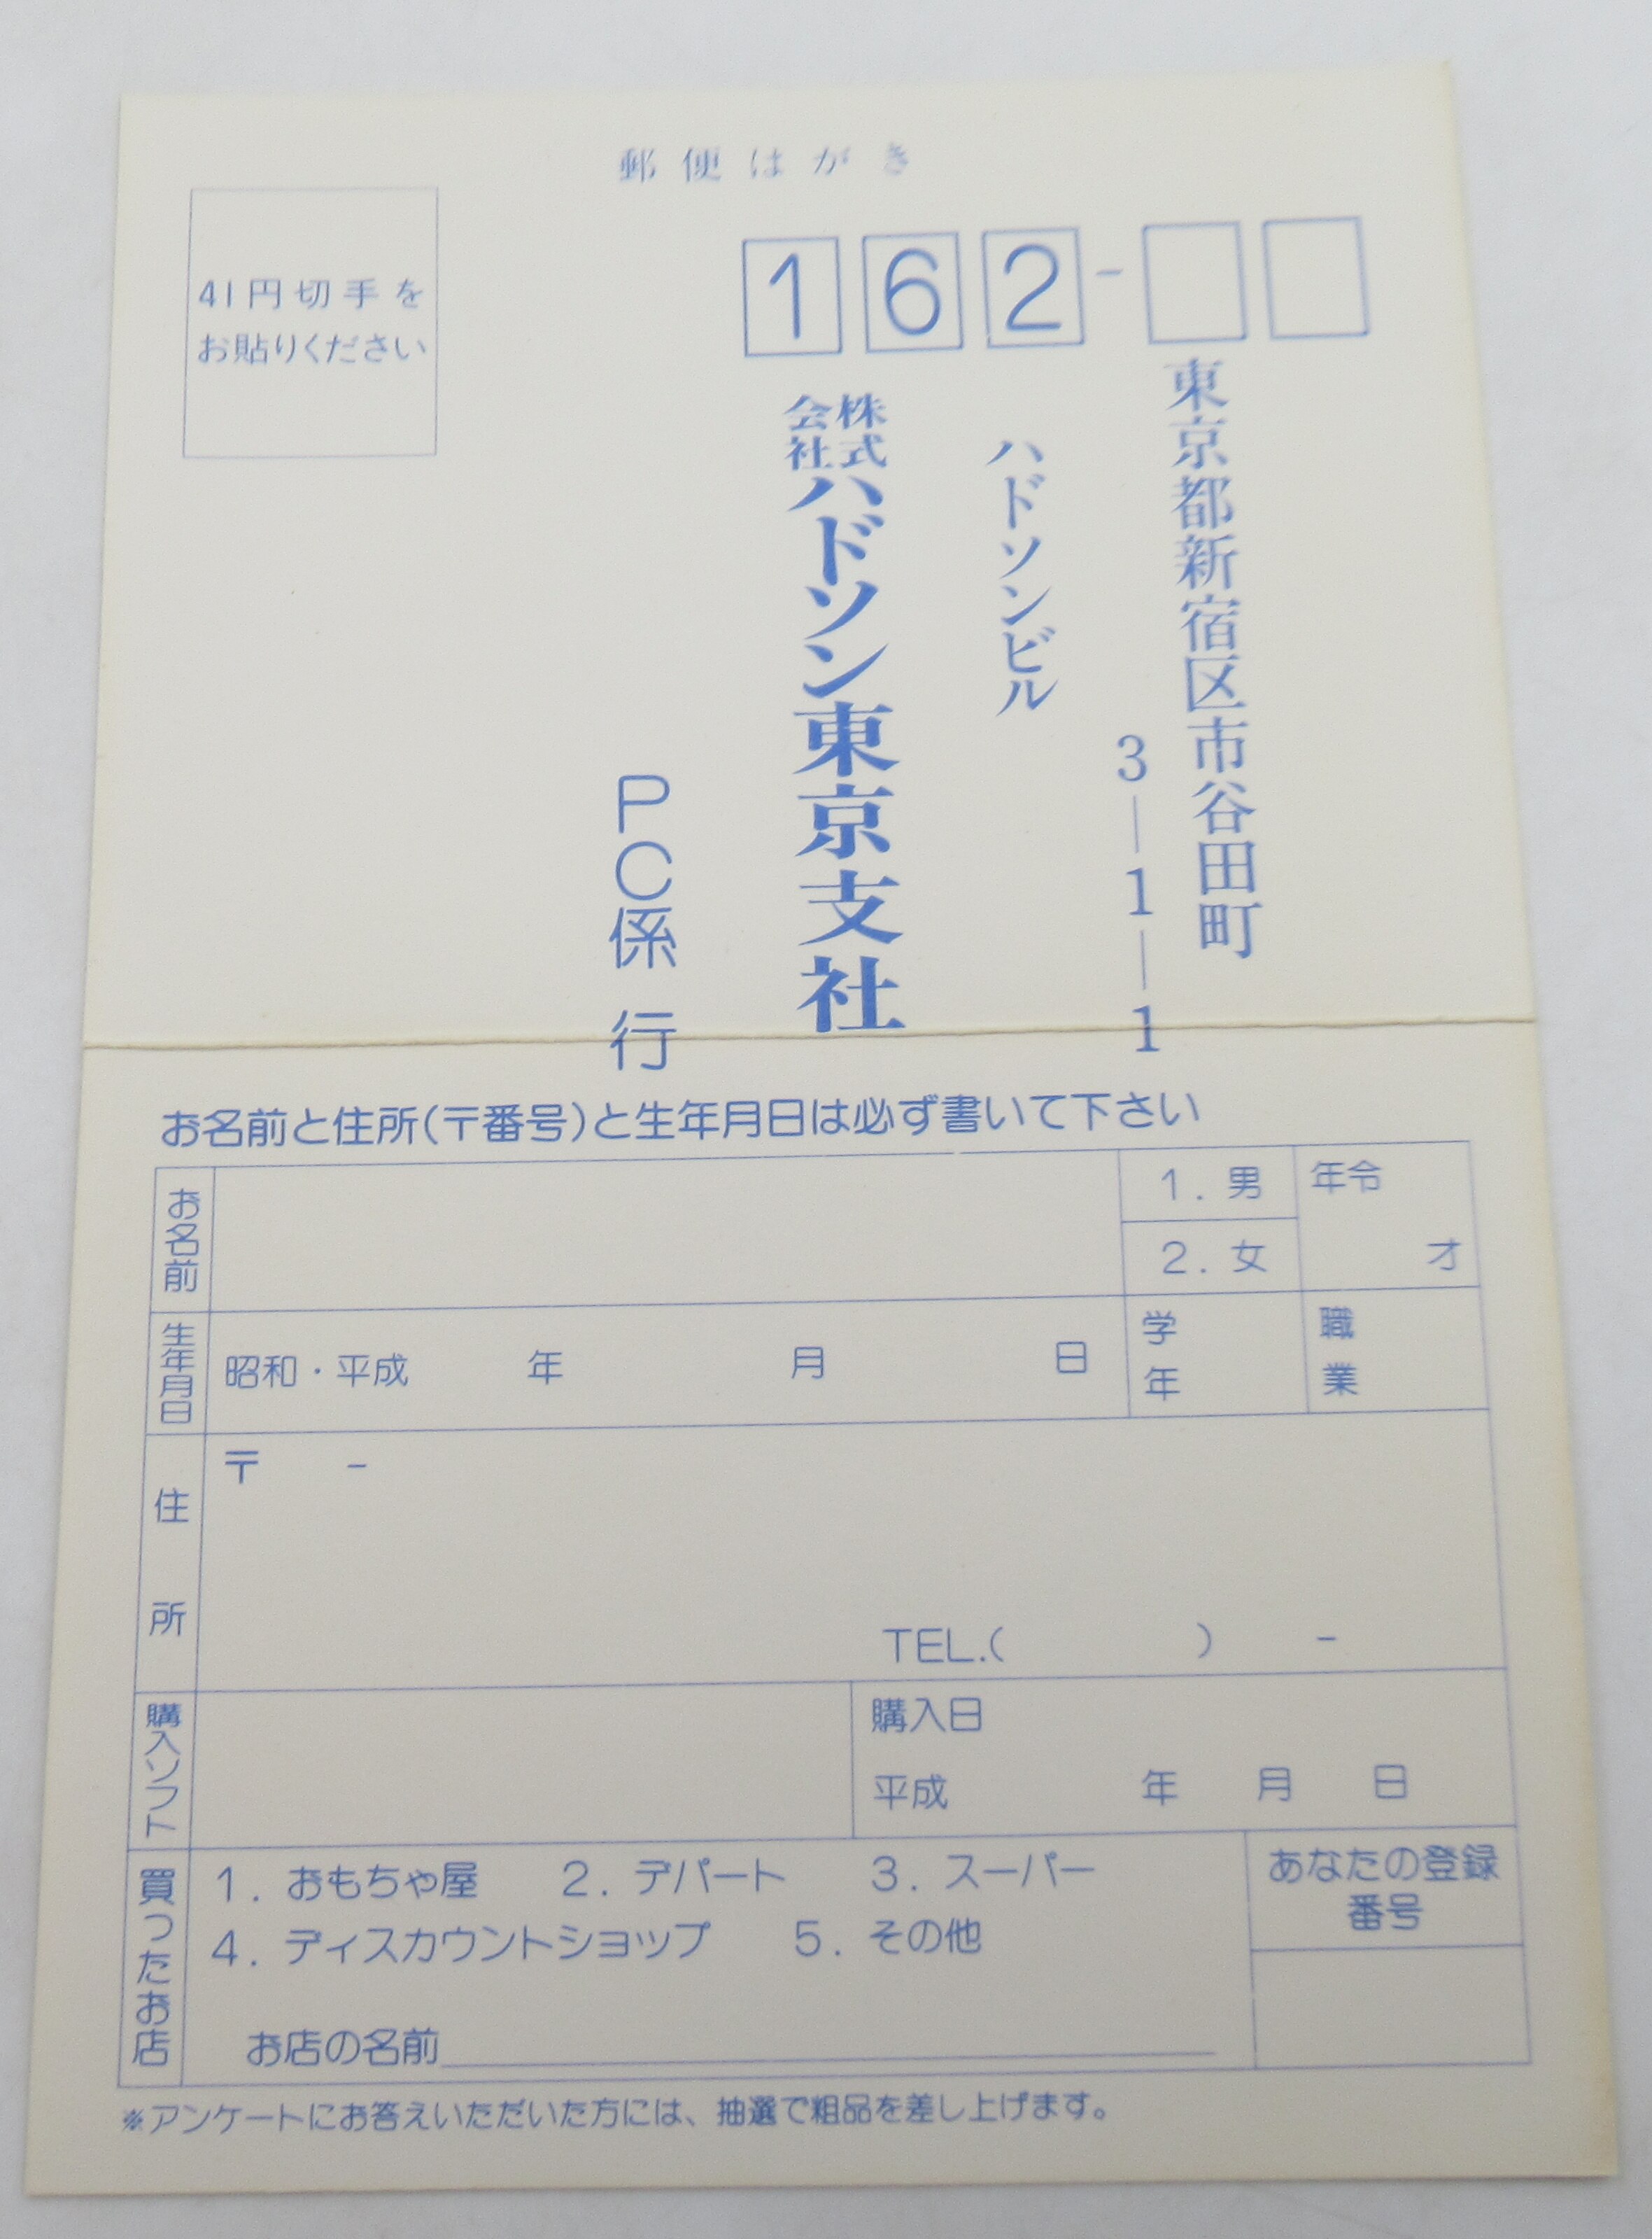 郵便はがき
41円切手を
お貼りください
162-
東京都新宿区市谷田町
3-1-1
ハドソンビル
株式会社ハドソン東京支社
PC係 行
お名前と住所(〒番号)と生年月日は必ず書いて下さい
お名前
1. 男
2. 女
年令
才
生年月日
昭和・平成 年 月 日
学年
職業
住所
〒 -
TEL.( ) -
購入ソフト
購入日
平成 年 月 日
買ったお店
1. おもちゃ屋 2. デパート 3. スーパー
4. ディスカウントショップ 5. その他
お店の名前
あなたの登録
番号
※アンケートにお答えいただいた方には、抽選で粗品を差し上げます。